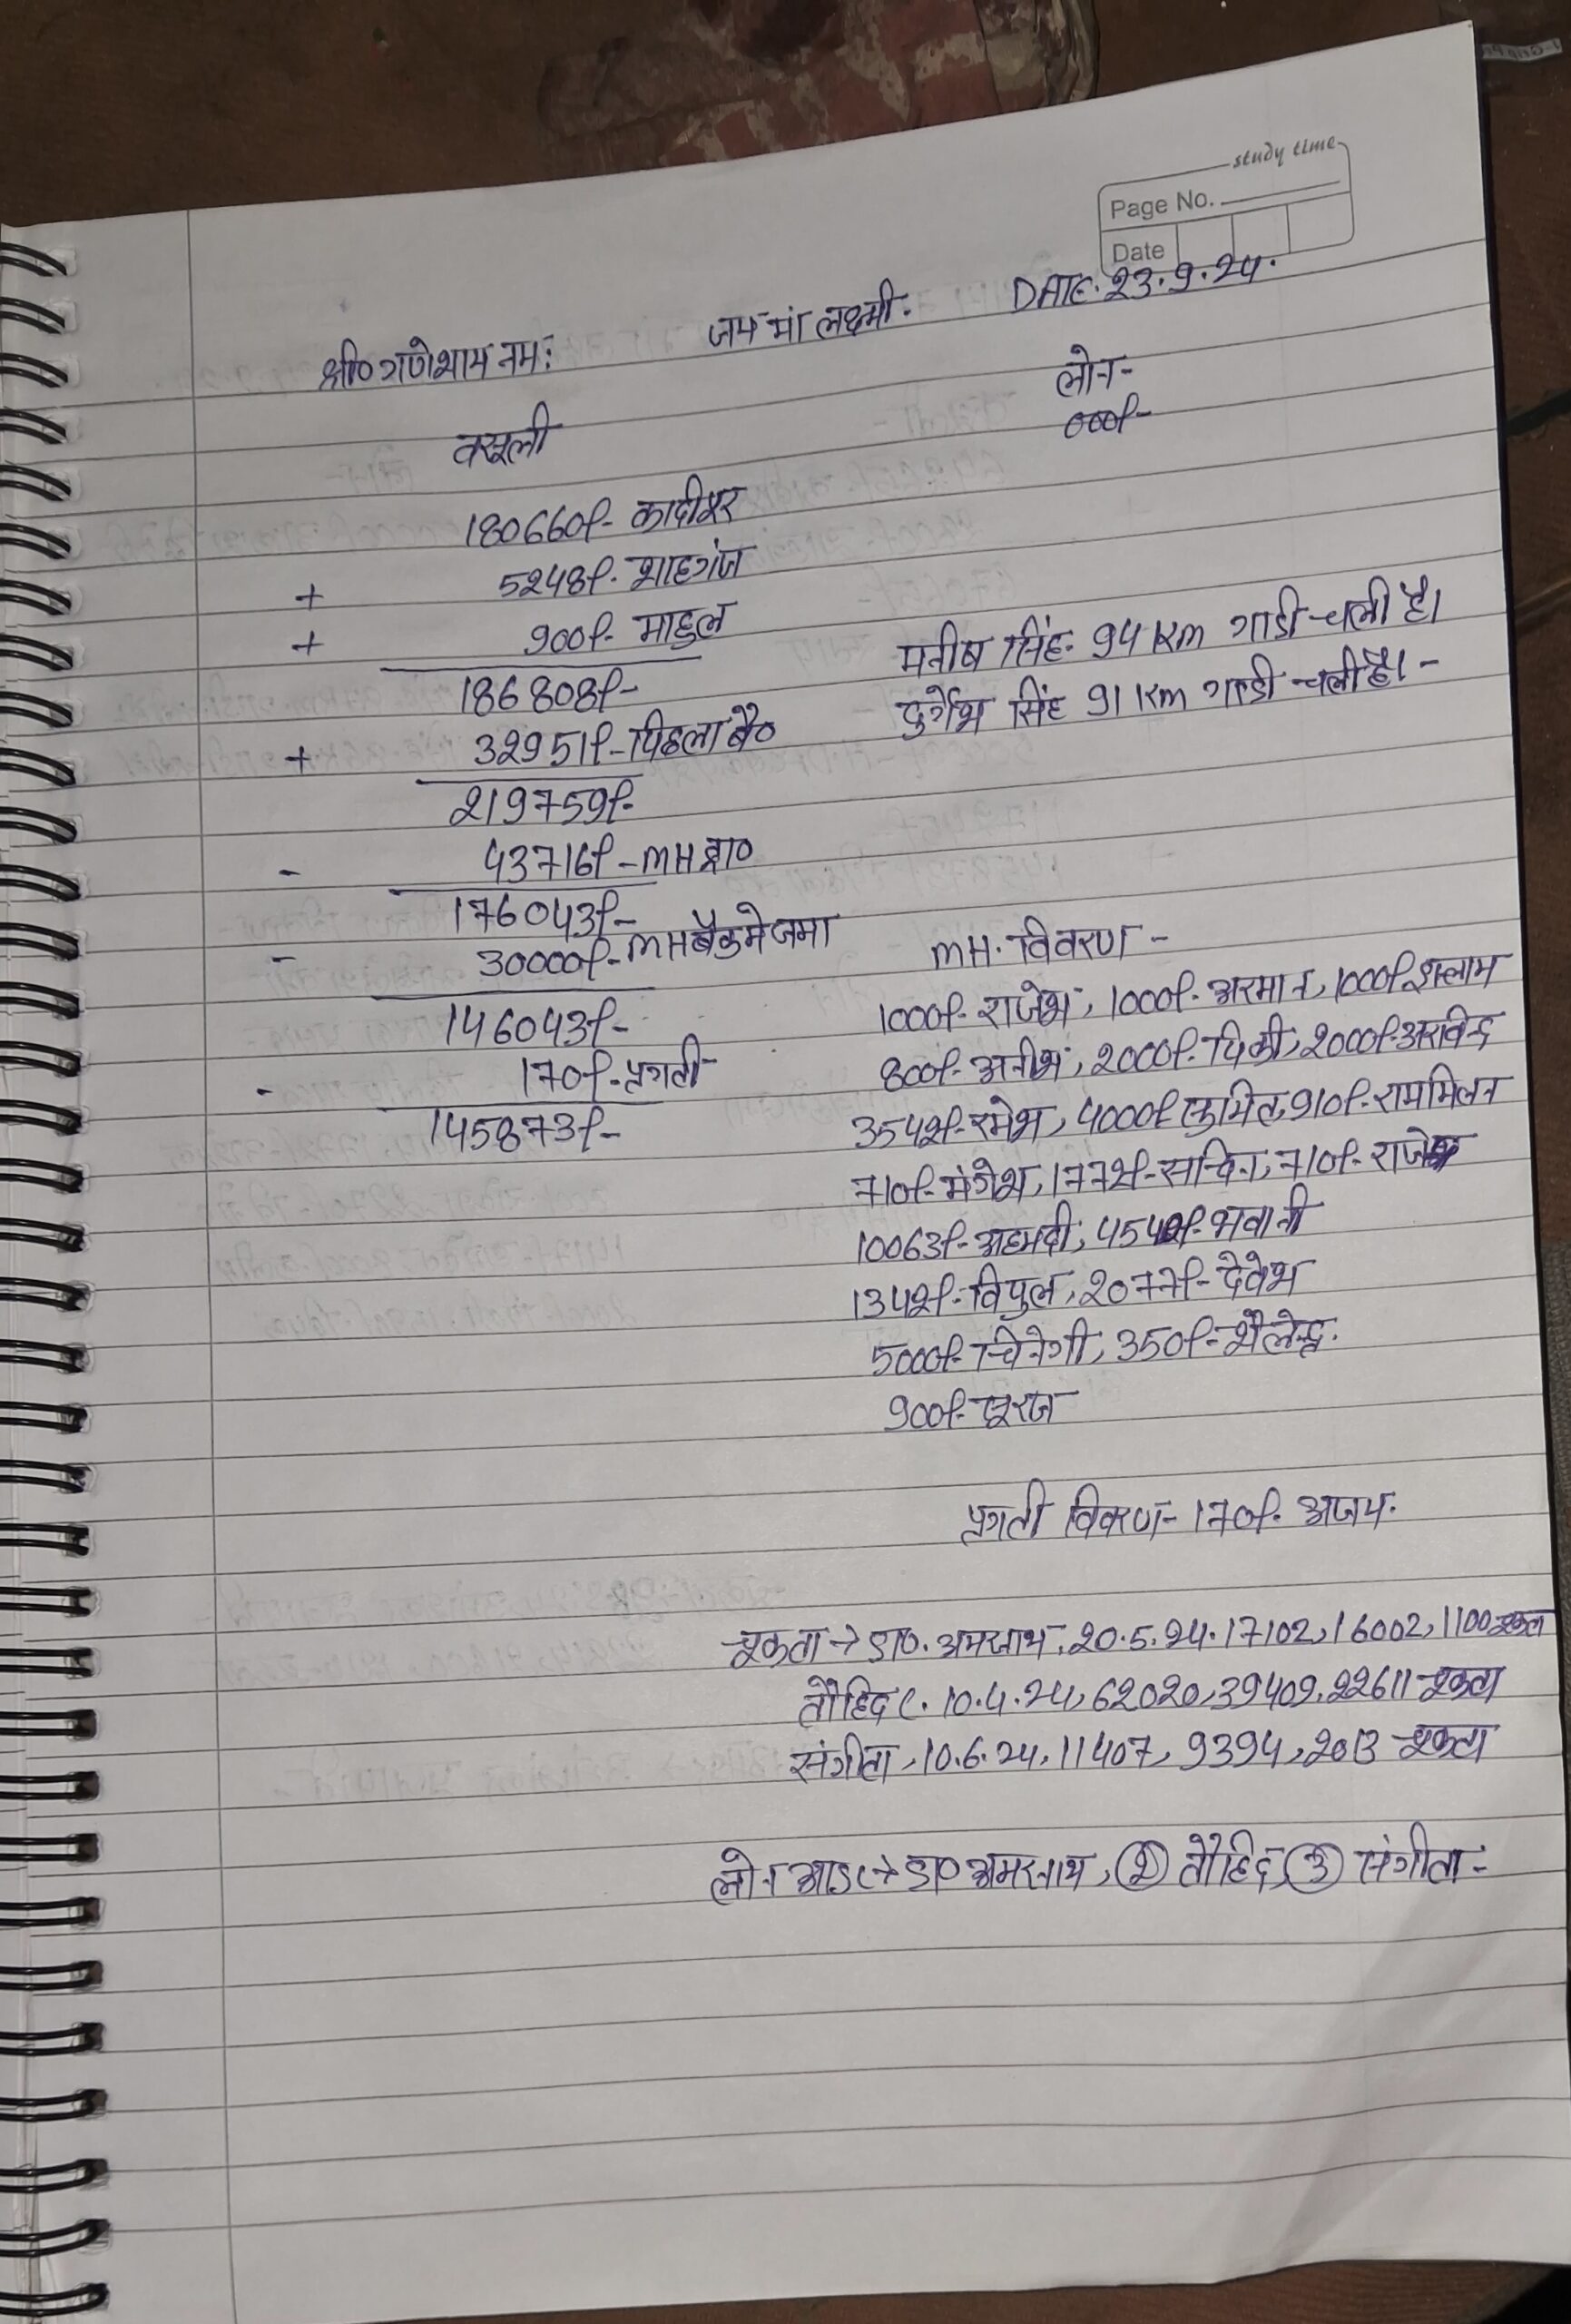 study time
Page No.
Date
श्री० गणेशाय नमः जय मां लक्ष्मी. DATE. 23.9.24.
वसूली
लोन-
000/-
180660/- कादीपुर
+ 5248/- शाहगंज
+ 900/- माहुल
186808/-
+ 32951/- पिछला बै०
219759/-
- 43716/- MH द्वा०
176043/-
- 30000/- MH बैंक मे जमा
146043/-
- 170/- प्रगती
145873/-
मनीष सिंह- 94 Km गाडी चली है।
दुर्गेश सिंह 91 Km गाडी चली है।-
MH. विवरण -
1000/- राजेश, 1000/- अरमान, 1000/- इस्लाम
800/- अनीश, 2000/- पिंकी, 2000/- अरविन्द
3542/- रमेश, 4000/- सुमित, 910/- राममिलन
710/- मंगेश, 1772/- सचिन, 710/- राजेश
10063/- अहमदी, 4542/- भवानी
1342/- विपुल, 2077/- देवेश
5000/- चिनेगी, 350/- शैलेन्द्र.
900/- सूरज
प्रगती विवरण- 170/- अजय.
चुकता → डा०. अमरनाथ. 20.5.24. 17102, 16002, 1100 चुकता
तौहिद (. 10.4.24, 62020, 39409, 22611 चुकता
संगीता, 10.6.24, 11407, 9394, 2013 चुकता
लोन आउट → डा० अमरनाथ, ② तौहिद, ③ संगीता-